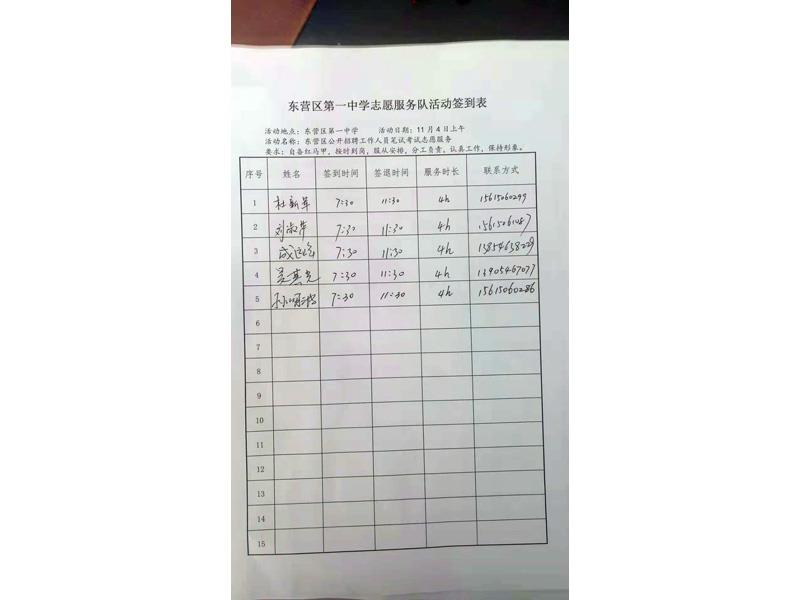 东营区第一中学志愿服务队活动签到表
活动地点：东营区第一中学 活动日期：11月4日上午
活动名称：东营区公开招聘工作人员笔试考试志愿服务
要求：自备红马甲，按时到岗，服从安排，分工负责，认真工作，保持形象。
序号 姓名 签到时间 签退时间 服务时长 联系方式
1 杜新军 7:30 11:30 4h 15615060299
2 刘淑萍 7:30 11:30 4h 15615061087
3 7:30 11:30 4h 15854658229
4 吴其光 7:30 11:30 4h 13905467077
5 7:30 11:30 4h 15615060286
6
7
8
9
10
11
12
13
14
15